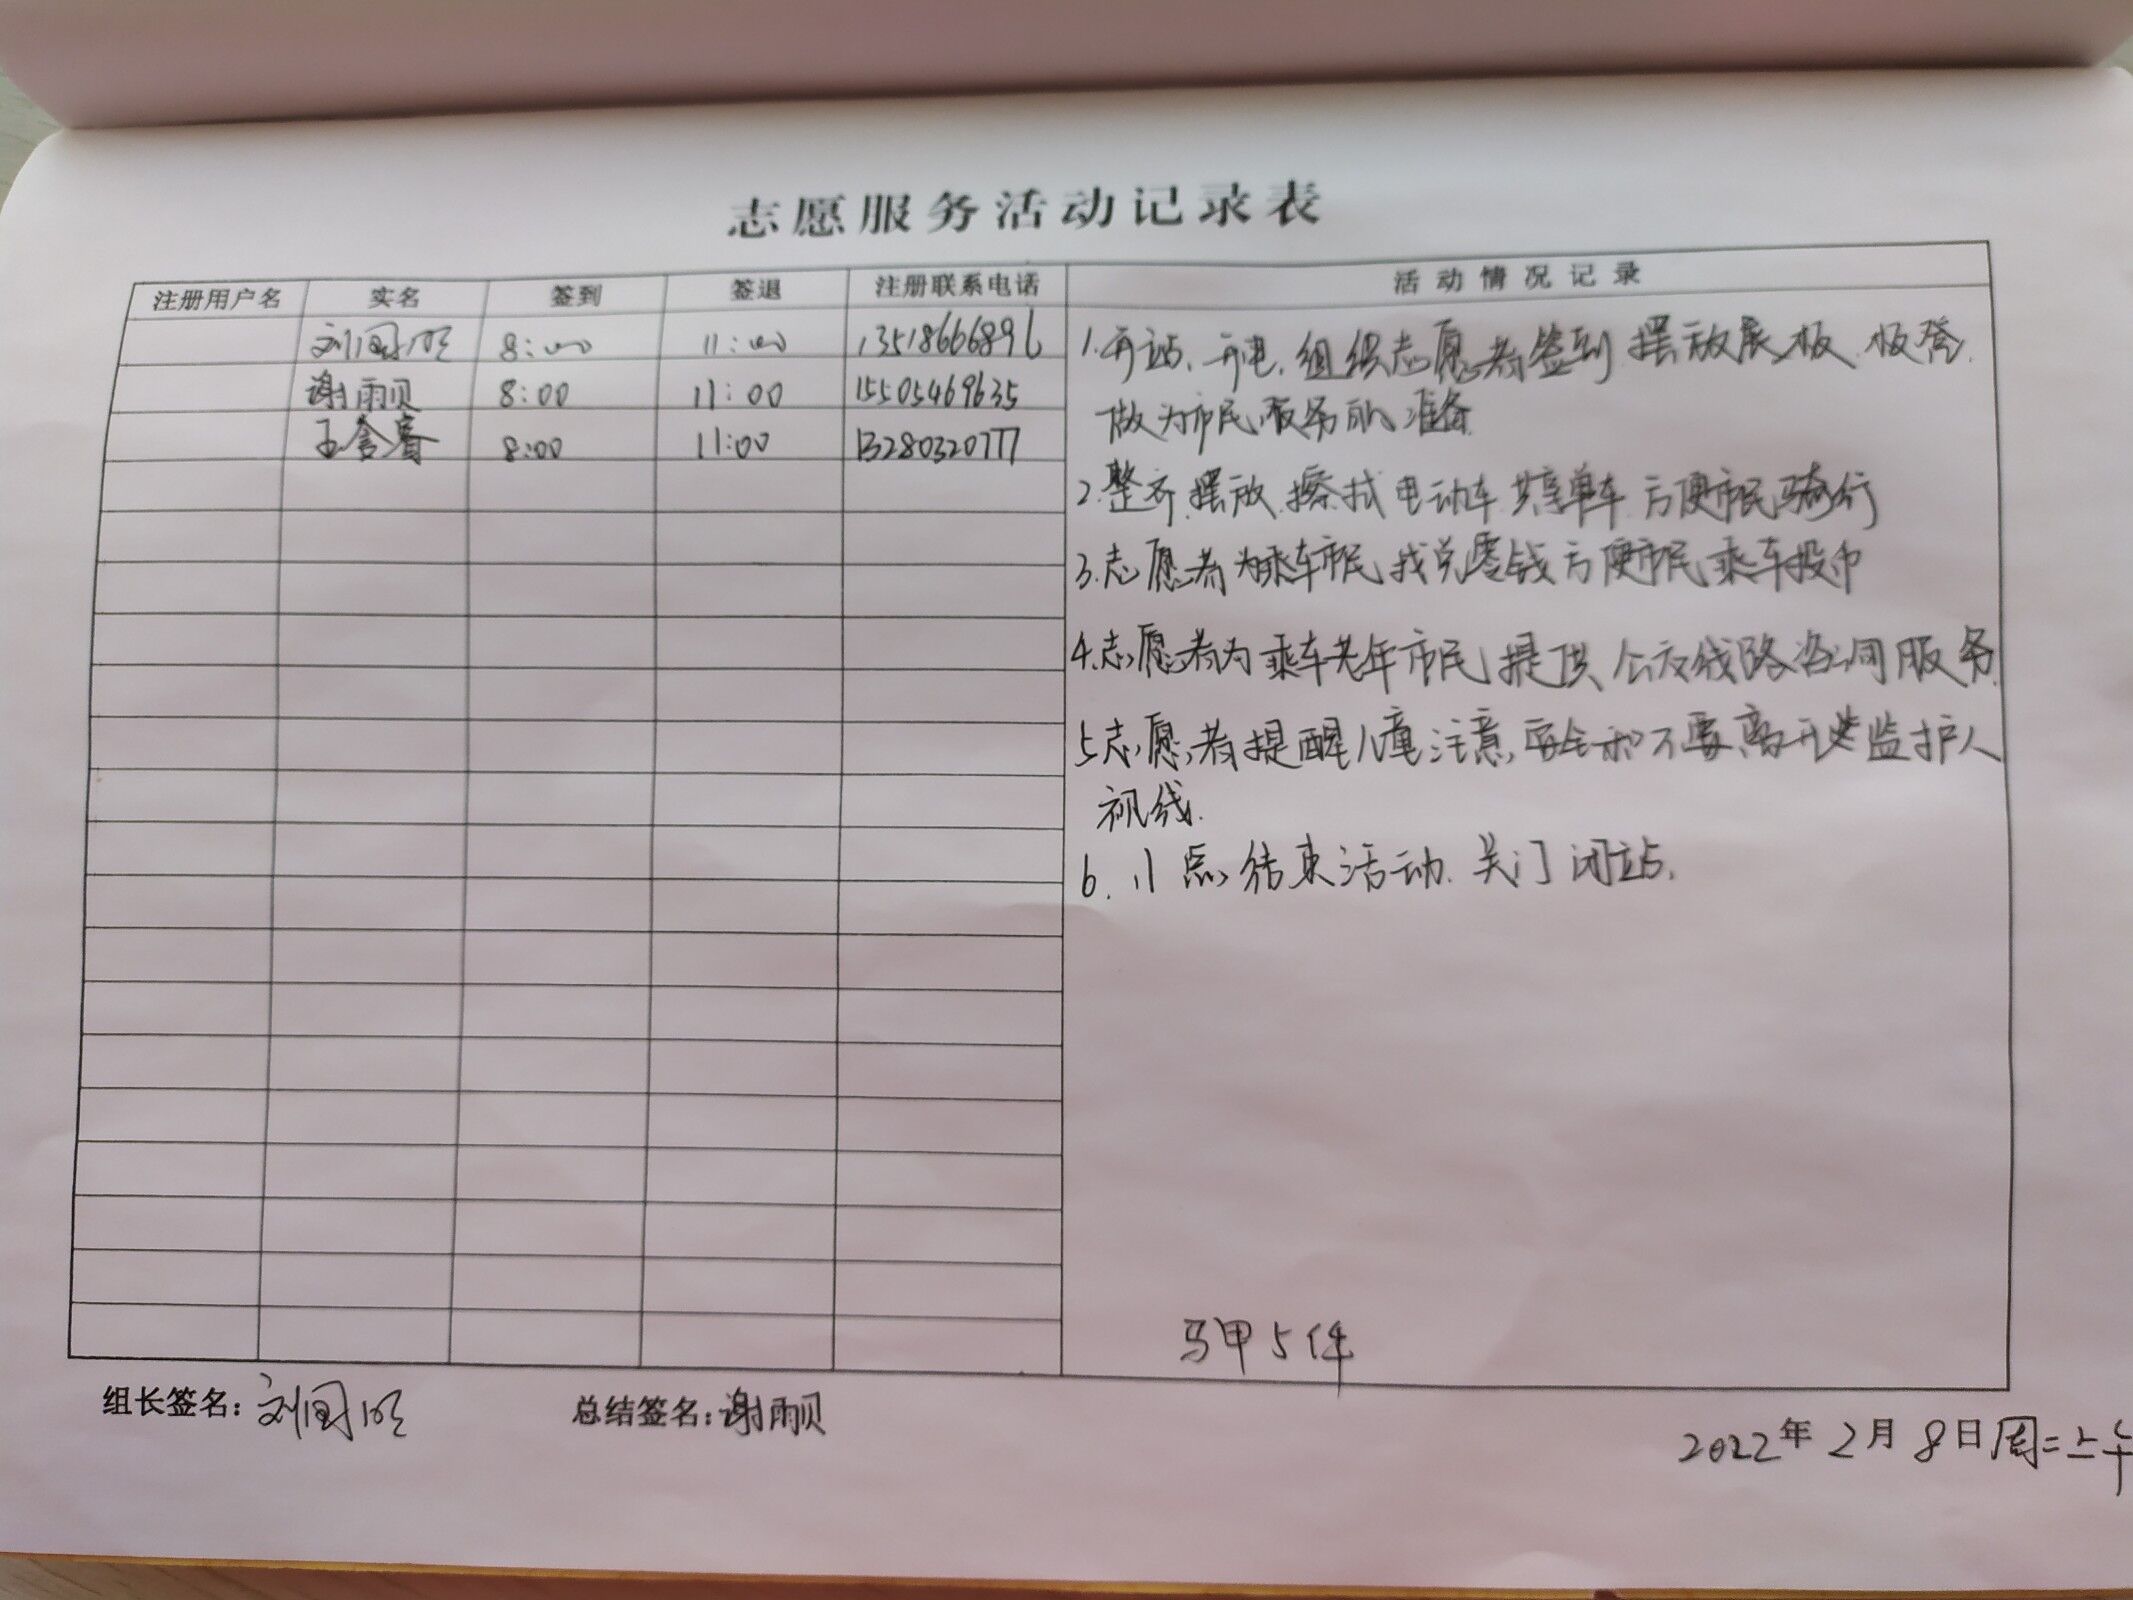 志愿服务活动记录表
注册用户名 实名 签到 签退 注册联系电话 活动情况记录
刘国欣 8:00 11:00 13518666896
谢雨贝 8:00 11:00 15505469635
王含睿 8:00 11:00 13280320777
1.开站、开电,组织志愿者签到 摆放展板、板凳.
做为市民服务的准备
2.整齐摆放.擦拭电动车 共享单车 方便市民骑行
3.志愿者为乘车市民找兑零钱方便市民乘车投币
4.志愿者为乘车老年市民提供公交线路咨询服务.
5志愿者提醒儿童注意安全和不要离开监护人
视线.
6.11点结束活动.关门闭站.
马甲5件
组长签名:刘国欣 总结签名:谢雨贝
2022年2月8日周二上午